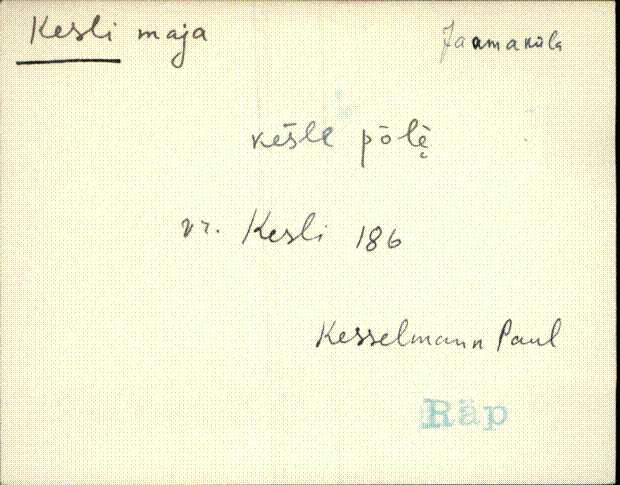 Kesli maja
Jaamaküla
kešle põlè̬
vr. Kesli 186
Kesselmann Paul
Räp